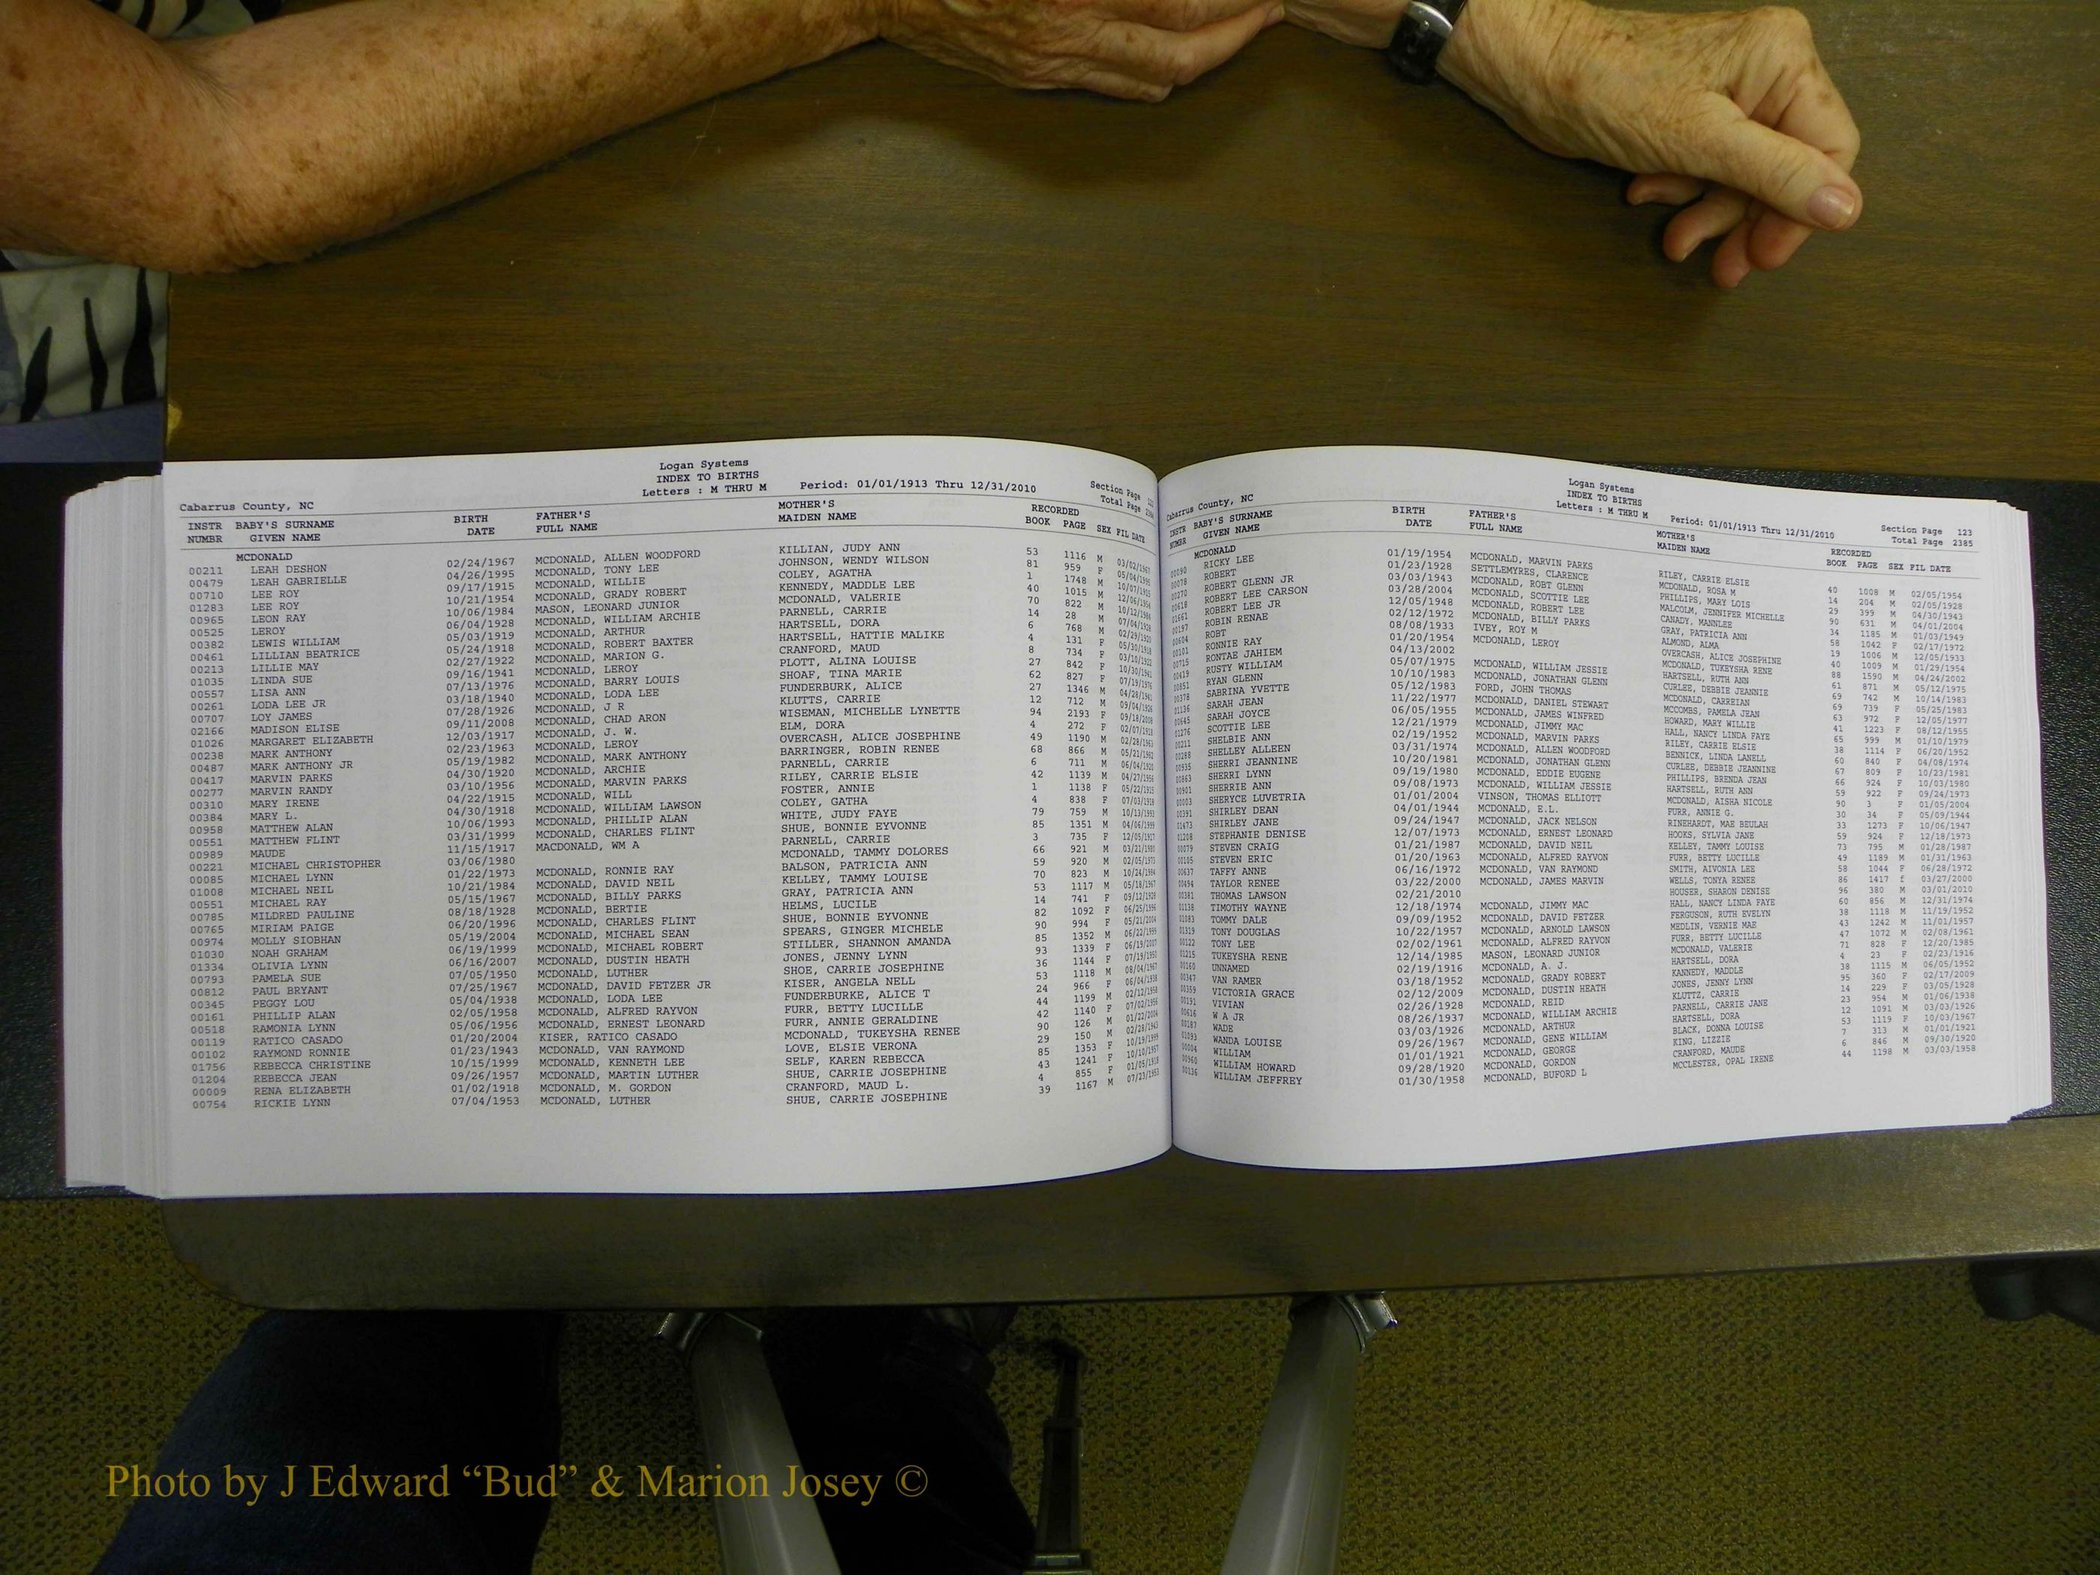 Logan Systems
INDEX TO BIRTHS
Letters : M THRU M Period: 01/01/1913 Thru 12/31/2010 Section Page
Cabarrus County, NC Total Page
INSTR BABY'S SURNAME BIRTH FATHER'S MOTHER'S RECORDED
NUMBR GIVEN NAME DATE FULL NAME MAIDEN NAME BOOK PAGE SEX FIL DATE
MCDONALD
00211 LEAH DESHON 02/24/1967 MCDONALD, ALLEN WOODFORD KILLIAN, JUDY ANN 53 1116 M 03/02/1967
00479 LEAH GABRIELLE 04/26/1995 MCDONALD, TONY LEE JOHNSON, WENDY WILSON 81 959 F 05/04/1995
00710 LEE ROY 09/17/1915 MCDONALD, WILLIE COLEY, AGATHA 1 1748 M 10/07/1915
01283 LEE ROY 10/21/1954 MCDONALD, GRADY ROBERT KENNEDY, MADDLE LEE 40 1015 M
00965 LEON RAY 10/06/1984 MASON, LEONARD JUNIOR MCDONALD, VALERIE 70 822 M
00525 LEROY 06/04/1928 MCDONALD, WILLIAM ARCHIE PARNELL, CARRIE 14 28 M
00382 LEWIS WILLIAM 05/03/1919 MCDONALD, ARTHUR HARTSELL, DORA 6 768 M
00461 LILLIAN BEATRICE 05/24/1918 MCDONALD, ROBERT BAXTER HARTSELL, HATTIE MALIKE 4 131 F
00213 LILLIE MAY 02/27/1922 MCDONALD, MARION G. CRANFORD, MAUD 8 734 F
01035 LINDA SUE 09/16/1941 MCDONALD, LEROY PLOTT, ALINA LOUISE 27 842 F
00557 LISA ANN 07/13/1976 MCDONALD, BARRY LOUIS SHOAF, TINA MARIE 62 827 F
00261 LODA LEE JR 03/18/1940 MCDONALD, LODA LEE FUNDERBURK, ALICE 27 1346 M
00707 LOY JAMES 07/28/1926 MCDONALD, J R KLUTTS, CARRIE 12 712 M
02166 MADISON ELISE 09/11/2008 MCDONALD, CHAD ARON WISEMAN, MICHELLE LYNETTE 94 2193 F
01026 MARGARET ELIZABETH 12/03/1917 MCDONALD, J. W. ELM, DORA 4 272 F
00238 MARK ANTHONY 02/23/1963 MCDONALD, LEROY OVERCASH, ALICE JOSEPHINE 49 1190 M
00487 MARK ANTHONY JR 05/19/1982 MCDONALD, MARK ANTHONY BARRINGER, ROBIN RENEE 68 866 M
00417 MARVIN PARKS 04/30/1920 MCDONALD, ARCHIE PARNELL, CARRIE 6 711 M
00277 MARVIN RANDY 03/10/1956 MCDONALD, MARVIN PARKS RILEY, CARRIE ELSIE 42 1139 M
00310 MARY IRENE 04/22/1915 MCDONALD, WILL FOSTER, ANNIE 1 1138 F
00384 MARY L. 04/30/1918 MCDONALD, WILLIAM LAWSON COLEY, GATHA 4 838 F
00958 MATTHEW ALAN 10/06/1993 MCDONALD, PHILLIP ALAN WHITE, JUDY FAYE 79 759 M
00551 MATTHEW FLINT 03/31/1999 MCDONALD, CHARLES FLINT SHUE, BONNIE EYVONNE 85 1351 M
00989 MAUDE 11/15/1917 MACDONALD, WM A PARNELL, CARRIE 3 735 F
00221 MICHAEL CHRISTOPHER 03/06/1980 MCDONALD, TAMMY DOLORES 66 921 M
00085 MICHAEL LYNN 01/22/1973 MCDONALD, RONNIE RAY BALSON, PATRICIA ANN 59 920 M
01008 MICHAEL NEIL 10/21/1984 MCDONALD, DAVID NEIL KELLEY, TAMMY LOUISE 70 823 M
00551 MICHAEL RAY 05/15/1967 MCDONALD, BILLY PARKS GRAY, PATRICIA ANN 53 1117 M
00785 MILDRED PAULINE 08/18/1928 MCDONALD, BERTIE HELMS, LUCILE 14 741 F
00765 MIRIAM PAIGE 06/20/1996 MCDONALD, CHARLES FLINT SHUE, BONNIE EYVONNE 82 1092 F
00974 MOLLY SIOBHAN 05/19/2004 MCDONALD, MICHAEL SEAN SPEARS, GINGER MICHELE 90 994 F
01030 NOAH GRAHAM 06/19/1999 MCDONALD, MICHAEL ROBERT STILLER, SHANNON AMANDA 85 1352 M
01334 OLIVIA LYNN 06/16/2007 MCDONALD, DUSTIN HEATH JONES, JENNY LYNN 93 1339 F
00793 PAMELA SUE 07/05/1950 MCDONALD, LUTHER SHOE, CARRIE JOSEPHINE 36 1144 F
00812 PAUL BRYANT 07/25/1967 MCDONALD, DAVID FETZER JR KISER, ANGELA NELL 53 1118 M
00345 PEGGY LOU 05/04/1938 MCDONALD, LODA LEE FUNDERBURKE, ALICE T 24 966 F
00161 PHILLIP ALAN 02/05/1958 MCDONALD, ALFRED RAYVON FURR, BETTY LUCILLE 44 1199 M
00518 RAMONIA LYNN 05/06/1956 MCDONALD, ERNEST LEONARD FURR, ANNIE GERALDINE 42 1140 F
00119 RATICO CASADO 01/20/2004 KISER, RATICO CASADO MCDONALD, TUKEYSHA RENEE 90 126 M
00102 RAYMOND RONNIE 01/23/1943 MCDONALD, VAN RAYMOND LOVE, ELSIE VERONA 29 150 M
01756 REBECCA CHRISTINE 10/15/1999 MCDONALD, KENNETH LEE SELF, KAREN REBECCA 85 1353 F
01204 REBECCA JEAN 09/26/1957 MCDONALD, MARTIN LUTHER SHUE, CARRIE JOSEPHINE 43 1241 F
00009 RENA ELIZABETH 01/02/1918 MCDONALD, M. GORDON CRANFORD, MAUD L. 4 855 F
00754 RICKIE LYNN 07/04/1953 MCDONALD, LUTHER SHUE, CARRIE JOSEPHINE 39 1167 M 07/23/1953
Logan Systems
INDEX TO BIRTHS
Letters : M THRU M Period: 01/01/1913 Thru 12/31/2010 Section Page 123
Cabarrus County, NC Total Page 2385
INSTR BABY'S SURNAME BIRTH FATHER'S MOTHER'S RECORDED
NUMBR GIVEN NAME DATE FULL NAME MAIDEN NAME BOOK PAGE SEX FIL DATE
MCDONALD
00090 RICKY LEE 01/19/1954 MCDONALD, MARVIN PARKS RILEY, CARRIE ELSIE 40 1008 M 02/05/1954
00078 ROBERT 01/23/1928 SETTLEMYRES, CLARENCE MCDONALD, ROSA M 14 204 M 02/05/1928
00270 ROBERT GLENN JR 03/03/1943 MCDONALD, ROBT GLENN PHILLIPS, MARY LOIS 29 399 M 04/30/1943
00618 ROBERT LEE CARSON 03/28/2004 MCDONALD, SCOTTIE LEE MALCOLM, JENNIFER MICHELLE 90 631 M 04/01/2004
01661 ROBERT LEE JR 12/05/1948 MCDONALD, ROBERT LEE CANADY, MANNLEE 34 1185 M 01/03/1949
00197 ROBIN RENAE 02/12/1972 MCDONALD, BILLY PARKS GRAY, PATRICIA ANN 58 1042 F 02/17/1972
00604 ROBT 08/08/1933 IVEY, ROY M ALMOND, ALMA 19 1006 M 12/05/1933
00101 RONNIE RAY 01/20/1954 MCDONALD, LEROY OVERCASH, ALICE JOSEPHINE 40 1009 M 01/29/1954
00715 RONTAE JAHIEM 04/13/2002 MCDONALD, TUKEYSHA RENE 88 1590 M 04/24/2002
00419 RUSTY WILLIAM 05/07/1975 MCDONALD, WILLIAM JESSIE HARTSELL, RUTH ANN 61 871 M 05/12/1975
00851 RYAN GLENN 10/10/1983 MCDONALD, JONATHAN GLENN CURLEE, DEBBIE JEANNIE 69 742 M 10/14/1983
00378 SABRINA YVETTE 05/12/1983 FORD, JOHN THOMAS MCDONALD, CARREIAN 69 739 F 05/25/1983
01136 SARAH JEAN 11/22/1977 MCDONALD, DANIEL STEWART MCCOMBS, PAMELA JEAN 63 972 F 12/05/1977
00645 SARAH JOYCE 06/05/1955 MCDONALD, JAMES WINFRED HOWARD, MARY WILLIE 41 1223 F 08/12/1955
01276 SCOTTIE LEE 12/21/1979 MCDONALD, JIMMY MAC HALL, NANCY LINDA FAYE 65 999 M 01/10/1979
00211 SHELBIE ANN 02/19/1952 MCDONALD, MARVIN PARKS RILEY, CARRIE ELSIE 38 1114 F 06/20/1952
00288 SHELLEY ALLEEN 03/31/1974 MCDONALD, ALLEN WOODFORD BENNICK, LINDA LANELL 60 840 F 04/08/1974
00935 SHERRI JEANNINE 10/20/1981 MCDONALD, JONATHAN GLENN CURLEE, DEBBIE JEANNINE 67 809 F 10/23/1981
00863 SHERRI LYNN 09/19/1980 MCDONALD, EDDIE EUGENE PHILLIPS, BRENDA JEAN 66 924 F 10/03/1980
00901 SHERRIE ANN 09/08/1973 MCDONALD, WILLIAM JESSIE HARTSELL, RUTH ANN 59 922 F 09/24/1973
00003 SHERYCE LUVETRIA 01/01/2004 VINSON, THOMAS ELLIOTT MCDONALD, AISHA NICOLE 90 3 F 01/05/2004
00391 SHIRLEY DEAN 04/01/1944 MCDONALD, E.L. FURR, ANNIE G. 30 34 F 05/09/1944
01473 SHIRLEY JANE 09/24/1947 MCDONALD, JACK NELSON RINEHARDT, MAE BEULAH 33 1273 F 10/06/1947
01208 STEPHANIE DENISE 12/07/1973 MCDONALD, ERNEST LEONARD HOOKS, SYLVIA JANE 59 924 F 12/18/1973
00079 STEVEN CRAIG 01/21/1987 MCDONALD, DAVID NEIL KELLEY, TAMMY LOUISE 73 795 M 01/28/1987
00105 STEVEN ERIC 01/20/1963 MCDONALD, ALFRED RAYVON FURR, BETTY LUCILLE 49 1189 M 01/31/1963
00637 TAFFY ANNE 06/16/1972 MCDONALD, VAN RAYMOND SMITH, AIVONIA LEE 58 1044 F 06/28/1972
00494 TAYLOR RENEE 03/22/2000 MCDONALD, JAMES MARVIN WELLS, TONYA RENEE 86 1417 f 03/27/2000
00381 THOMAS LAWSON 02/21/2010 HOUSER, SHARON DENISE 96 380 M 03/01/2010
01138 TIMOTHY WAYNE 12/18/1974 MCDONALD, JIMMY MAC HALL, NANCY LINDA FAYE 60 856 M 12/31/1974
01083 TOMMY DALE 09/09/1952 MCDONALD, DAVID FETZER FERGUSON, RUTH EVELYN 38 1118 M 11/19/1952
01319 TONY DOUGLAS 10/22/1957 MCDONALD, ARNOLD LAWSON MEDLIN, VERNIE MAE 43 1242 M 11/01/1957
00122 TONY LEE 02/02/1961 MCDONALD, ALFRED RAYVON FURR, BETTY LUCILLE 47 1072 M 02/08/1961
01215 TUKEYSHA RENE 12/14/1985 MASON, LEONARD JUNIOR MCDONALD, VALERIE 71 828 F 12/20/1985
00160 UNNAMED 02/19/1916 MCDONALD, A. J. HARTSELL, DORA 4 23 F 02/23/1916
00347 VAN RAMER 03/18/1952 MCDONALD, GRADY ROBERT KANNEDY, MADDLE 38 1115 M 06/05/1952
00359 VICTORIA GRACE 02/12/2009 MCDONALD, DUSTIN HEATH JONES, JENNY LYNN 95 360 F 02/17/2009
00191 VIVIAN 02/26/1928 MCDONALD, REID KLUTTZ, CARRIE 14 229 F 03/05/1928
00616 W A JR 08/26/1937 MCDONALD, WILLIAM ARCHIE PARNELL, CARRIE JANE 23 954 M 01/06/1938
00187 WADE 03/03/1926 MCDONALD, ARTHUR HARTSELL, DORA 12 1091 M 03/03/1926
01093 WANDA LOUISE 09/26/1967 MCDONALD, GENE WILLIAM BLACK, DONNA LOUISE 53 1119 F 10/03/1967
00004 WILLIAM 01/01/1921 MCDONALD, GEORGE KING, LIZZIE 7 313 M 01/01/1921
00960 WILLIAM HOWARD 09/28/1920 MCDONALD, GORDON CRANFORD, MAUDE 6 846 M 09/30/1920
00136 WILLIAM JEFFREY 01/30/1958 MCDONALD, BUFORD L MCCLESTER, OPAL IRENE 44 1198 M 03/03/1958
Photo by J Edward “Bud” & Marion Josey ©